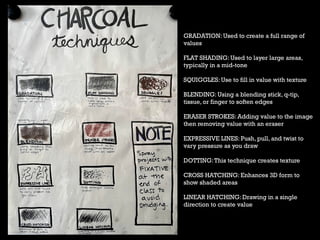 CHARCOAL
techniques
GRADATION
FLAT SHADING
SQUIGGLES
BLENDING
ERASER STROKES
EXPRESSIVE LINES
DOTTING
CROSS HATCHING
LINEAR HATCHING
NOTE
Spray
projects with
FIXATIVE
at the
end of
class to
avoid
smudging.
GRADATION: Used to create a full range of
values
FLAT SHADING: Used to layer large areas,
typically in a mid-tone
SQUIGGLES: Use to fill in value with texture
BLENDING: Using a blending stick, q-tip,
tissue, or finger to soften edges
ERASER STROKES: Adding value to the image
then removing value with an eraser
EXPRESSIVE LINES: Push, pull, and twist to
vary pressure as you draw
DOTTING: This technique creates texture
CROSS HATCHING: Enhances 3D form to
show shaded areas
LINEAR HATCHING: Drawing in a single
direction to create value